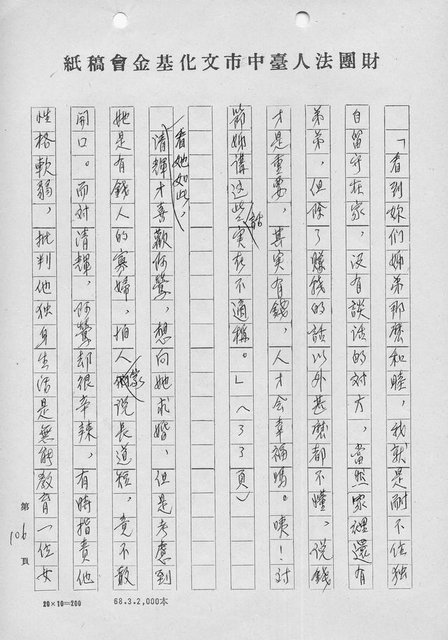 財團法人臺中市文化基金會稿紙
「看到妳們姊弟那麽和睦，我就是耐不住獨
自留守在家，沒有談话的对方，當然家裡還有
弟弟，但除了賺錢的話以外甚麽都不懂，说錢
才是重要，其实有錢，人才会幸福嗎。咦！对
菊姊講这些話实在不適稱。」（33頁）
看她如此，
清輝才喜歡阿鶯，想向她求婚，但是考慮到
她是有錢人的寡婦，怕人家说長道短，竟不敢
開口。而对清輝，阿鶯却很辛辣，有時指責他
性格軟弱，批判他独身生活是無能教育一位女
第106頁
20×10=200
68.3.2,000本